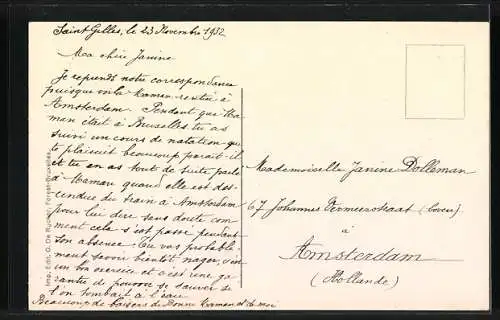 Saint Gilles, le 23 Novembre 1932
Ma chère Janine
Je reprends notre correspondance
puisque voilà Maman rentrée à
Amsterdam. Pendant que Ma-
man était à Bruxelles tu as
suivi un cours de natation qui
te plaisait beaucoup paraît-il
et tu en as tout de suite parlé
à Maman quand elle est des-
cendue du train à Amsterdam
pour lui dire sans doute com-
ment cela s'est passé pendant
son absence. Tu vas probable-
ment savoir bientôt nager, c'est
un bon exercice et c'est une ga-
rantie de pouvoir se sauver si
l'on tombait à l'eau.
Beaucoup de baisers de Bonne Maman et de moi
Mademoiselle Janine Dolleman
67 Johannes Vermeerstraat (boven)
à
Amsterdam
(Hollande)
Imp. Edit. G. De Rudder, Forest-Bruxelles